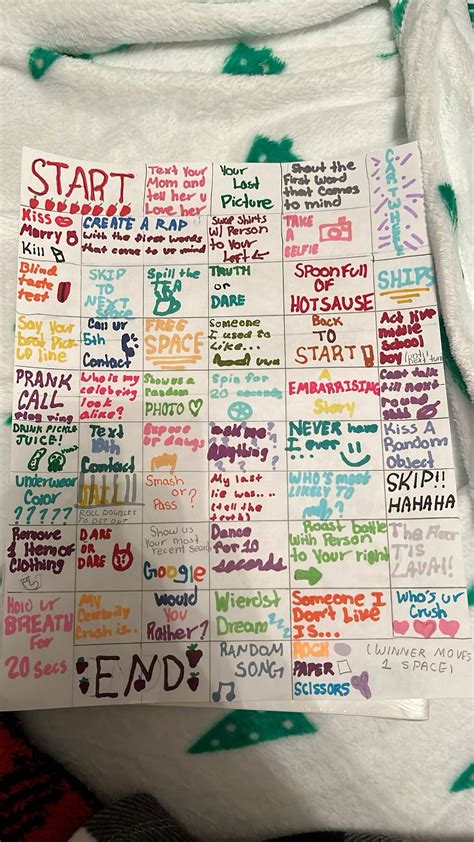 START
Text Your
Mom and
tell her u
Love her
Your
Last
Picture
Shout the
First Word
that Comes
to mind
CARTWHEELS
Kiss
Marry
Kill
CREATE A RAP
with the first words
that come to ur mind
Swap Shirts
W/ Person
to Your
Left
TAKE
A
SELFIE
Blind
taste
test
SKIP
TO
NEXT
SPACE
Spill the
TEA
TRUTH
or
DARE
SPOONFULL
OF
HOTSAUSE
SHIPS
Say Your
best Pick-
up line
Call ur
5th
Contact
FREE
SPACE
Someone
I used to
Like..
BACK
TO
START!
Act like
middle
School
boy (next turn)
PRANK
CALL
Ding ring
Who is my
celebrity
look
alike?
Show us a
random
PHOTO
Spin for
20 seconds
A
EMBARRISING
Story
Cant talk
till next
round
shhh
DRINK PICKLE
JUICE!
Text
10th
Contact
Expose
or dawgs
ask me
Anything?
NEVER have
I ever
Kiss A
Random
Object
Underwear
Color
?????
JAIL
ROLL DOUBLES
TO GET OUT
Smash
or
Pass
?
My last
lie was...
(tell the
truth)
WHO'S most
LIKELY TO
SKIP!!
HAHAHA
Remove
1 Item of
Clothing
DARE
OR
DARE
Show us
Your most
recent Search
Google
Dance
for 10
seconds
Roast battle
With Person
to Your right
The Floor
IS
LAVA!!
Hold ur
BREATH
For
20 secs
My
Celebrity
Crush is..
Would
You
Rather?
Wierdst
Dream
zzz
Someone I
Don't Live
IS...
Who's ur
Crush
END!
RANDOM
SONG
ROCK
PAPER
SCISSORS
(WINNER MOVES
1 SPACE)